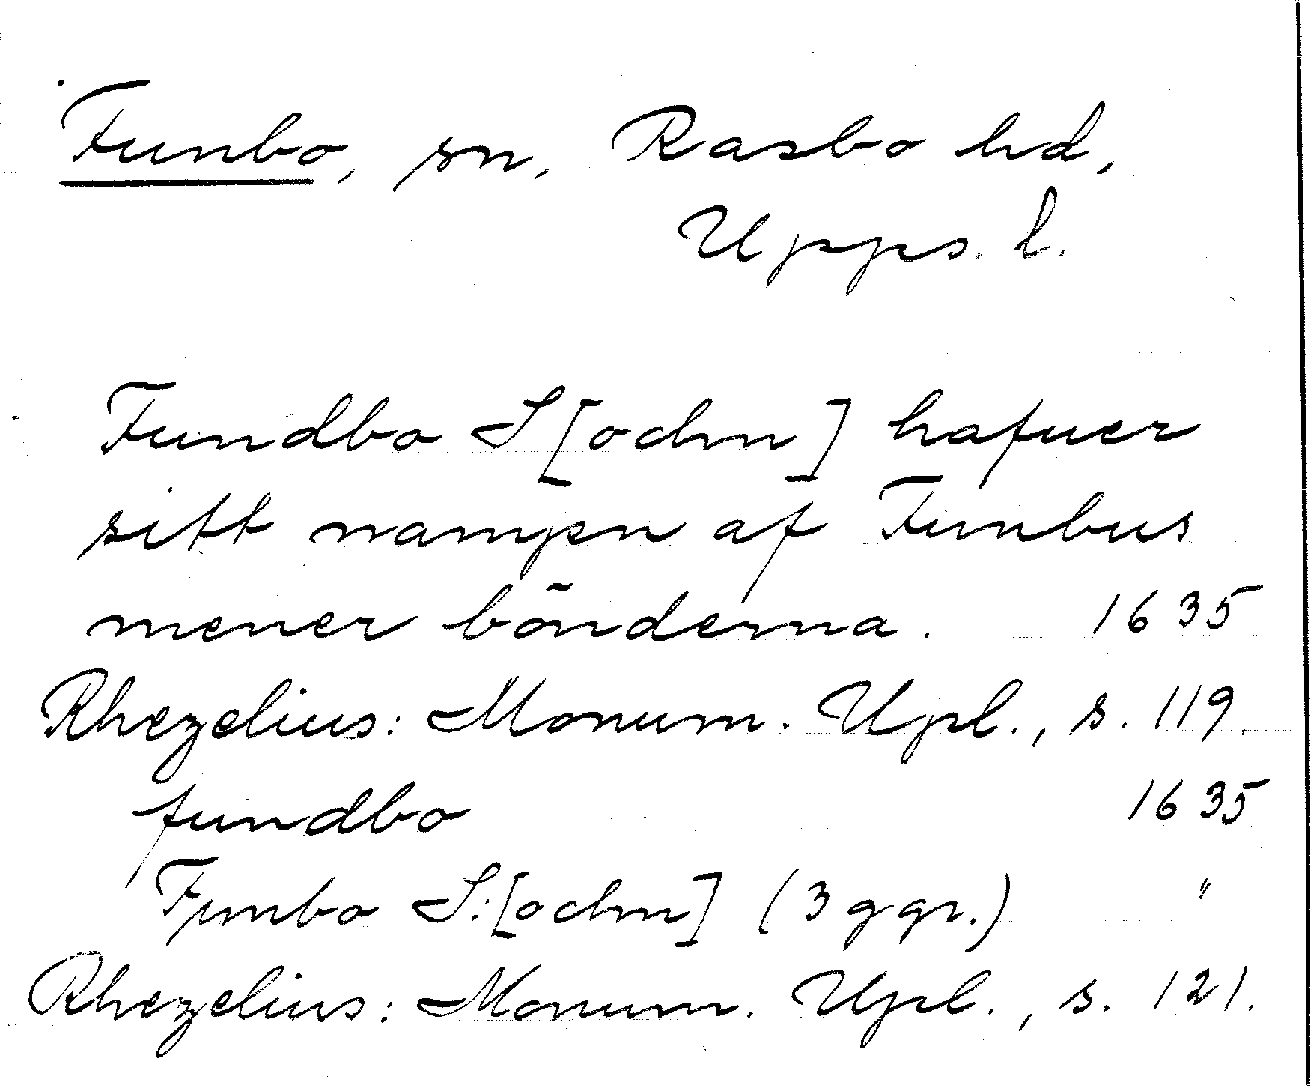 Funbo, sn, Rasbo hd,
Upps. l.
Fundbo S[ochn] hafuer
sitt nampn af Funbus
mener bönderna. 1635
Rhezelius: Monum. Upl., s. 119
fundbo 1635
Funbo S:[ochn] (3 ggr.) "
Rhezelius: Monum. Upl., s. 121.